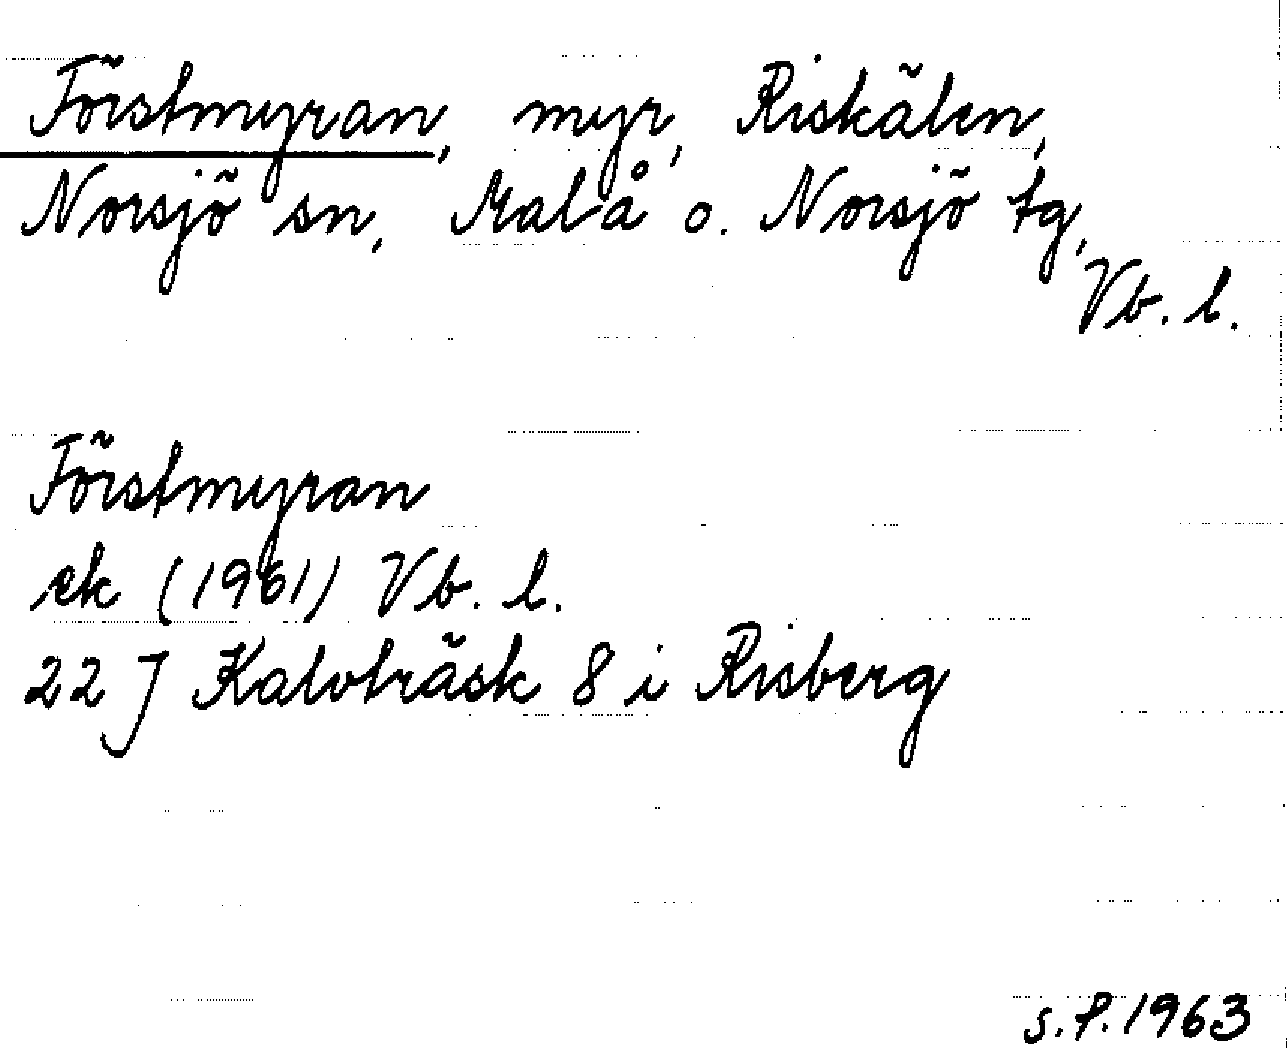 Förstmyran, myr, Riskälen,
Norsjö sn, Malå o. Norsjö tg,
Vb. l.
Förstmyran
ek (1961) Vb. l.
22 J Kalvträsk 8 i Risberg
s.P. 1963